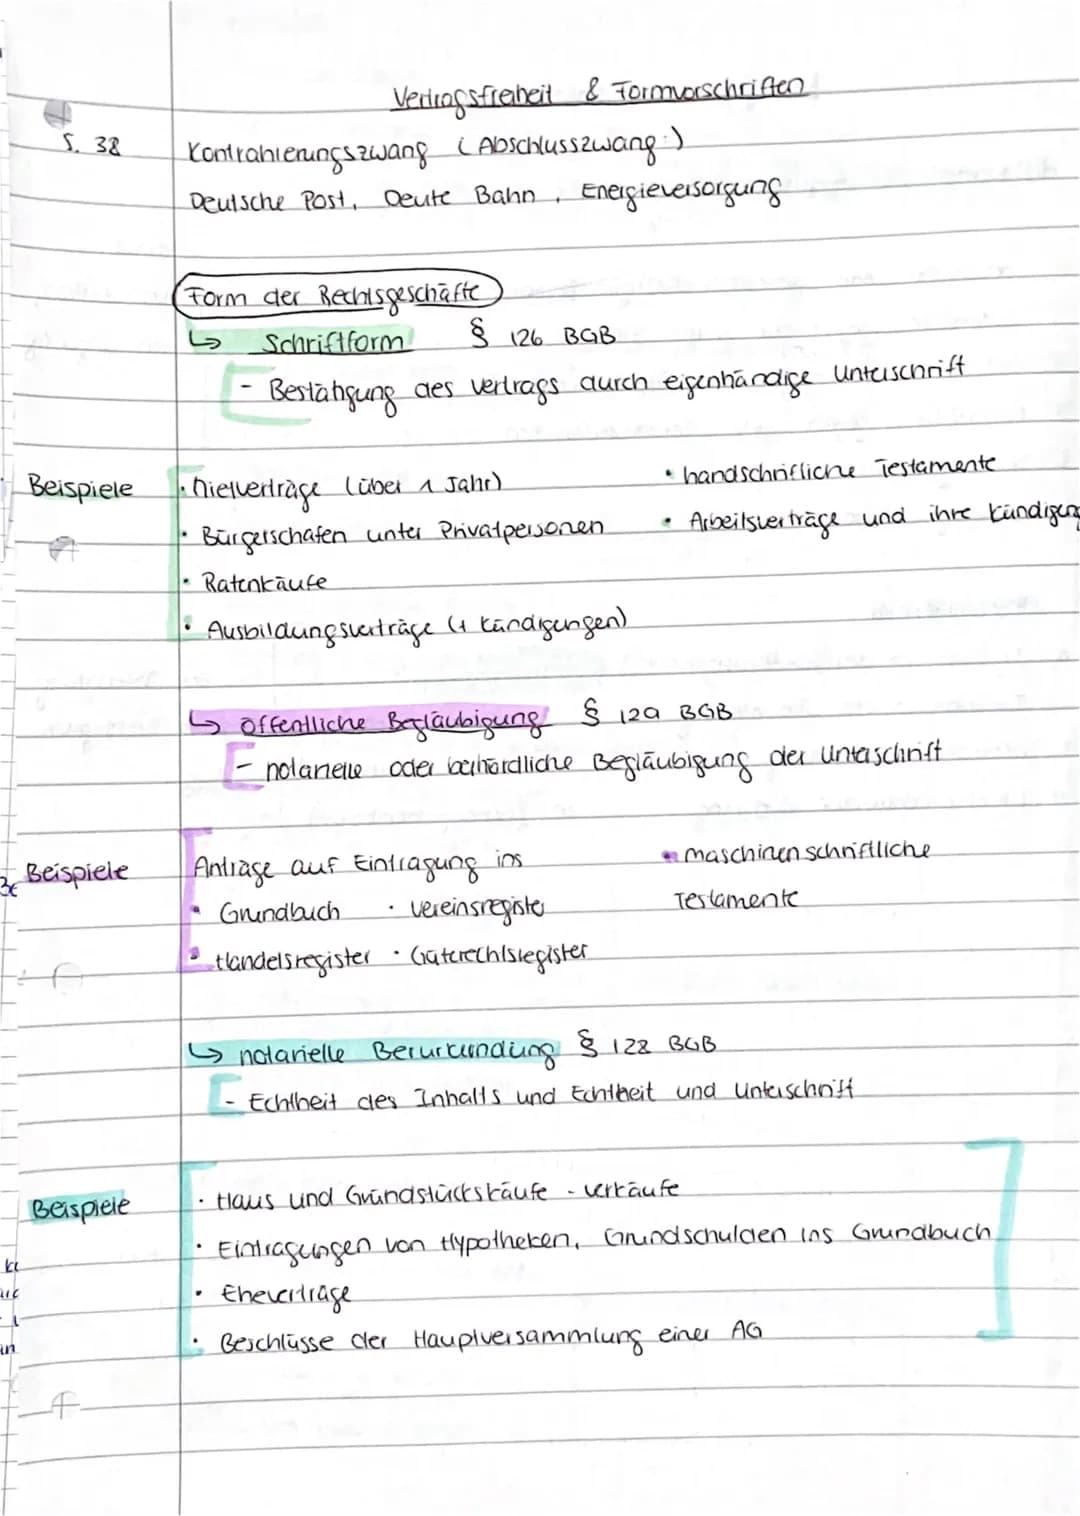 Vertragsfreiheit & Formvorschriften
S. 38
Kontrahierungszwang (Abschlusszwang:)
Deutsche Post, Deute Bahn, Energieversorgung
Form der Rechtsgeschäfte
↳ Schriftform § 126 BGB
- Bestätigung des Vertrags durch eigenhändige Unterschrift
Beispiele
• Mietverträge (über 1 Jahr)
• handschriftliche Testamente
• Bürgerschafen unter Privatpersonen
• Arbeitsverträge und ihre Kündigung
• Ratenkäufe
• Ausbildungsverträge (+ Kündigungen)
↳ öffentliche Begläubigung § 129 BGB
- notarielle oder behördliche Begläubigung der Unterschrift
Beispiele
Anträge auf Eintragung ins
• maschinenschriftliche
• Grundbuch • Vereinsregister
Testamente
• Handelsregister • Güterechtsregister
↳ notarielle Berurkundung § 128 BGB
- Echtheit des Inhalts und Echtheit und Unterschrift
Beispiele
• Haus und Grundstückskäufe - verkäufe
• Eintragungen von Hypotheken, Grundschulden ins Grundbuch
• Eheverträge
• Beschlüsse der Hauptversammlung einer AG